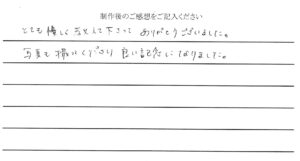 制作後のご感想をご記入ください
とても優しく 対応して下さって ありがとうございました。
写真も 撮ってくださり 良い記念になりました。